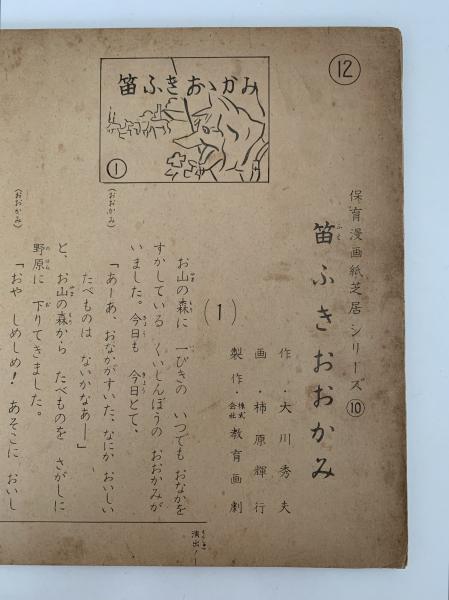 ⑫
笛ふきおゝかみ
①
保育漫画紙芝居シリーズ⑩
笛ふきおおかみ
ふえ
作・大川秀夫
画・柿原輝行
製作・株式会社教育画劇
(1)
お山の森に 一ぴきの いつでも おなかを
すかしている くいしんぼうの おおかみが
いました。今日も 今日とて、
(おおかみ)
「あーあ、おなかがすいた、なにか おいしい
たべものは ないかなあー」
と、お山の森から たべものを さがしに
野原に 下りてきました。
(おおかみ)
「おや しめしめ! あそこに おいし
演出ノ